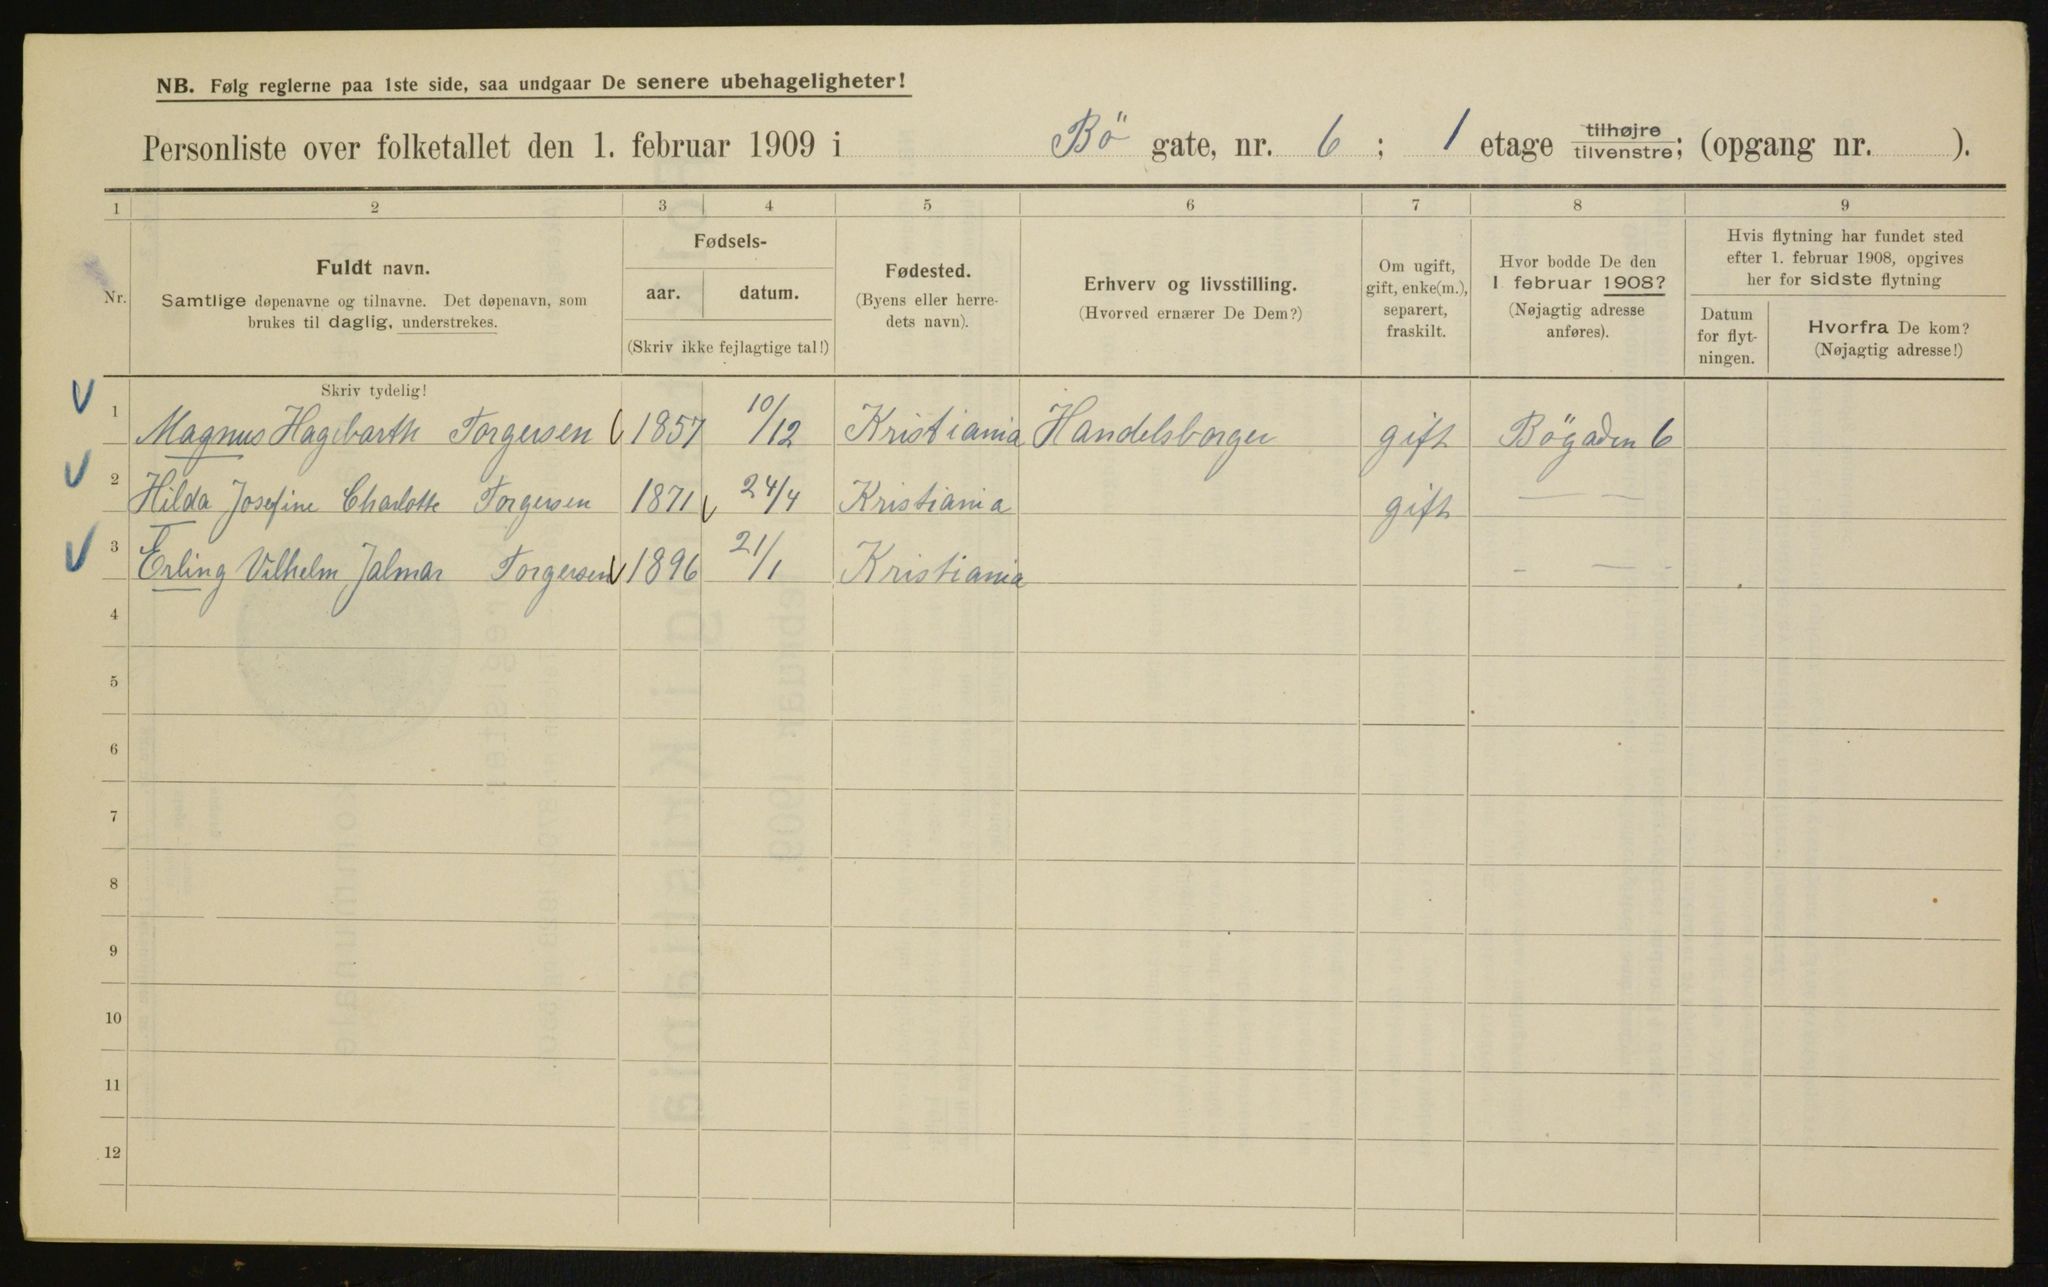 NB. Følg reglerne paa 1ste side, saa undgaar De senere ubehageligheter!
Personliste over folketallet den 1. februar 1909 i Bö gate, nr. 6; 1 etage tilhøjre/tilvenstre; (opgang nr. ).
1 2 3 4 5 6 7 8 9
Nr.
Fuldt navn.
Samtlige døpenavne og tilnavne. Det døpenavn, som
brukes til daglig, understrekes.
Fødsels-
aar. datum.
(Skriv ikke fejlagtige tal!)
Fødested.
(Byens eller herre-
dets navn).
Erhverv og livsstilling.
(Hvorved ernærer De Dem?)
Om ugift,
gift, enke(m.),
separert,
fraskilt.
Hvor bodde De den
1 februar 1908?
(Nøjagtig adresse
anføres).
Hvis flytning har fundet sted
efter 1. februar 1908, opgives
her for sidste flytning
Datum
for flyt-
ningen.
Hvorfra De kom?
(Nøjagtig adresse!)
Skriv tydelig!
1 Magnus Hagbarth Torgersen 1857 10/12 Kristiania Handelsborger gift Bögaden 6
2 Hilda Josefine Charlotte Torgersen 1871 24/4 Kristiania gift — —
3 Erling Vilhelm Jalmar Torgersen 1896 21/1 Kristiania - — -
4
5
6
7
8
9
10
11
12